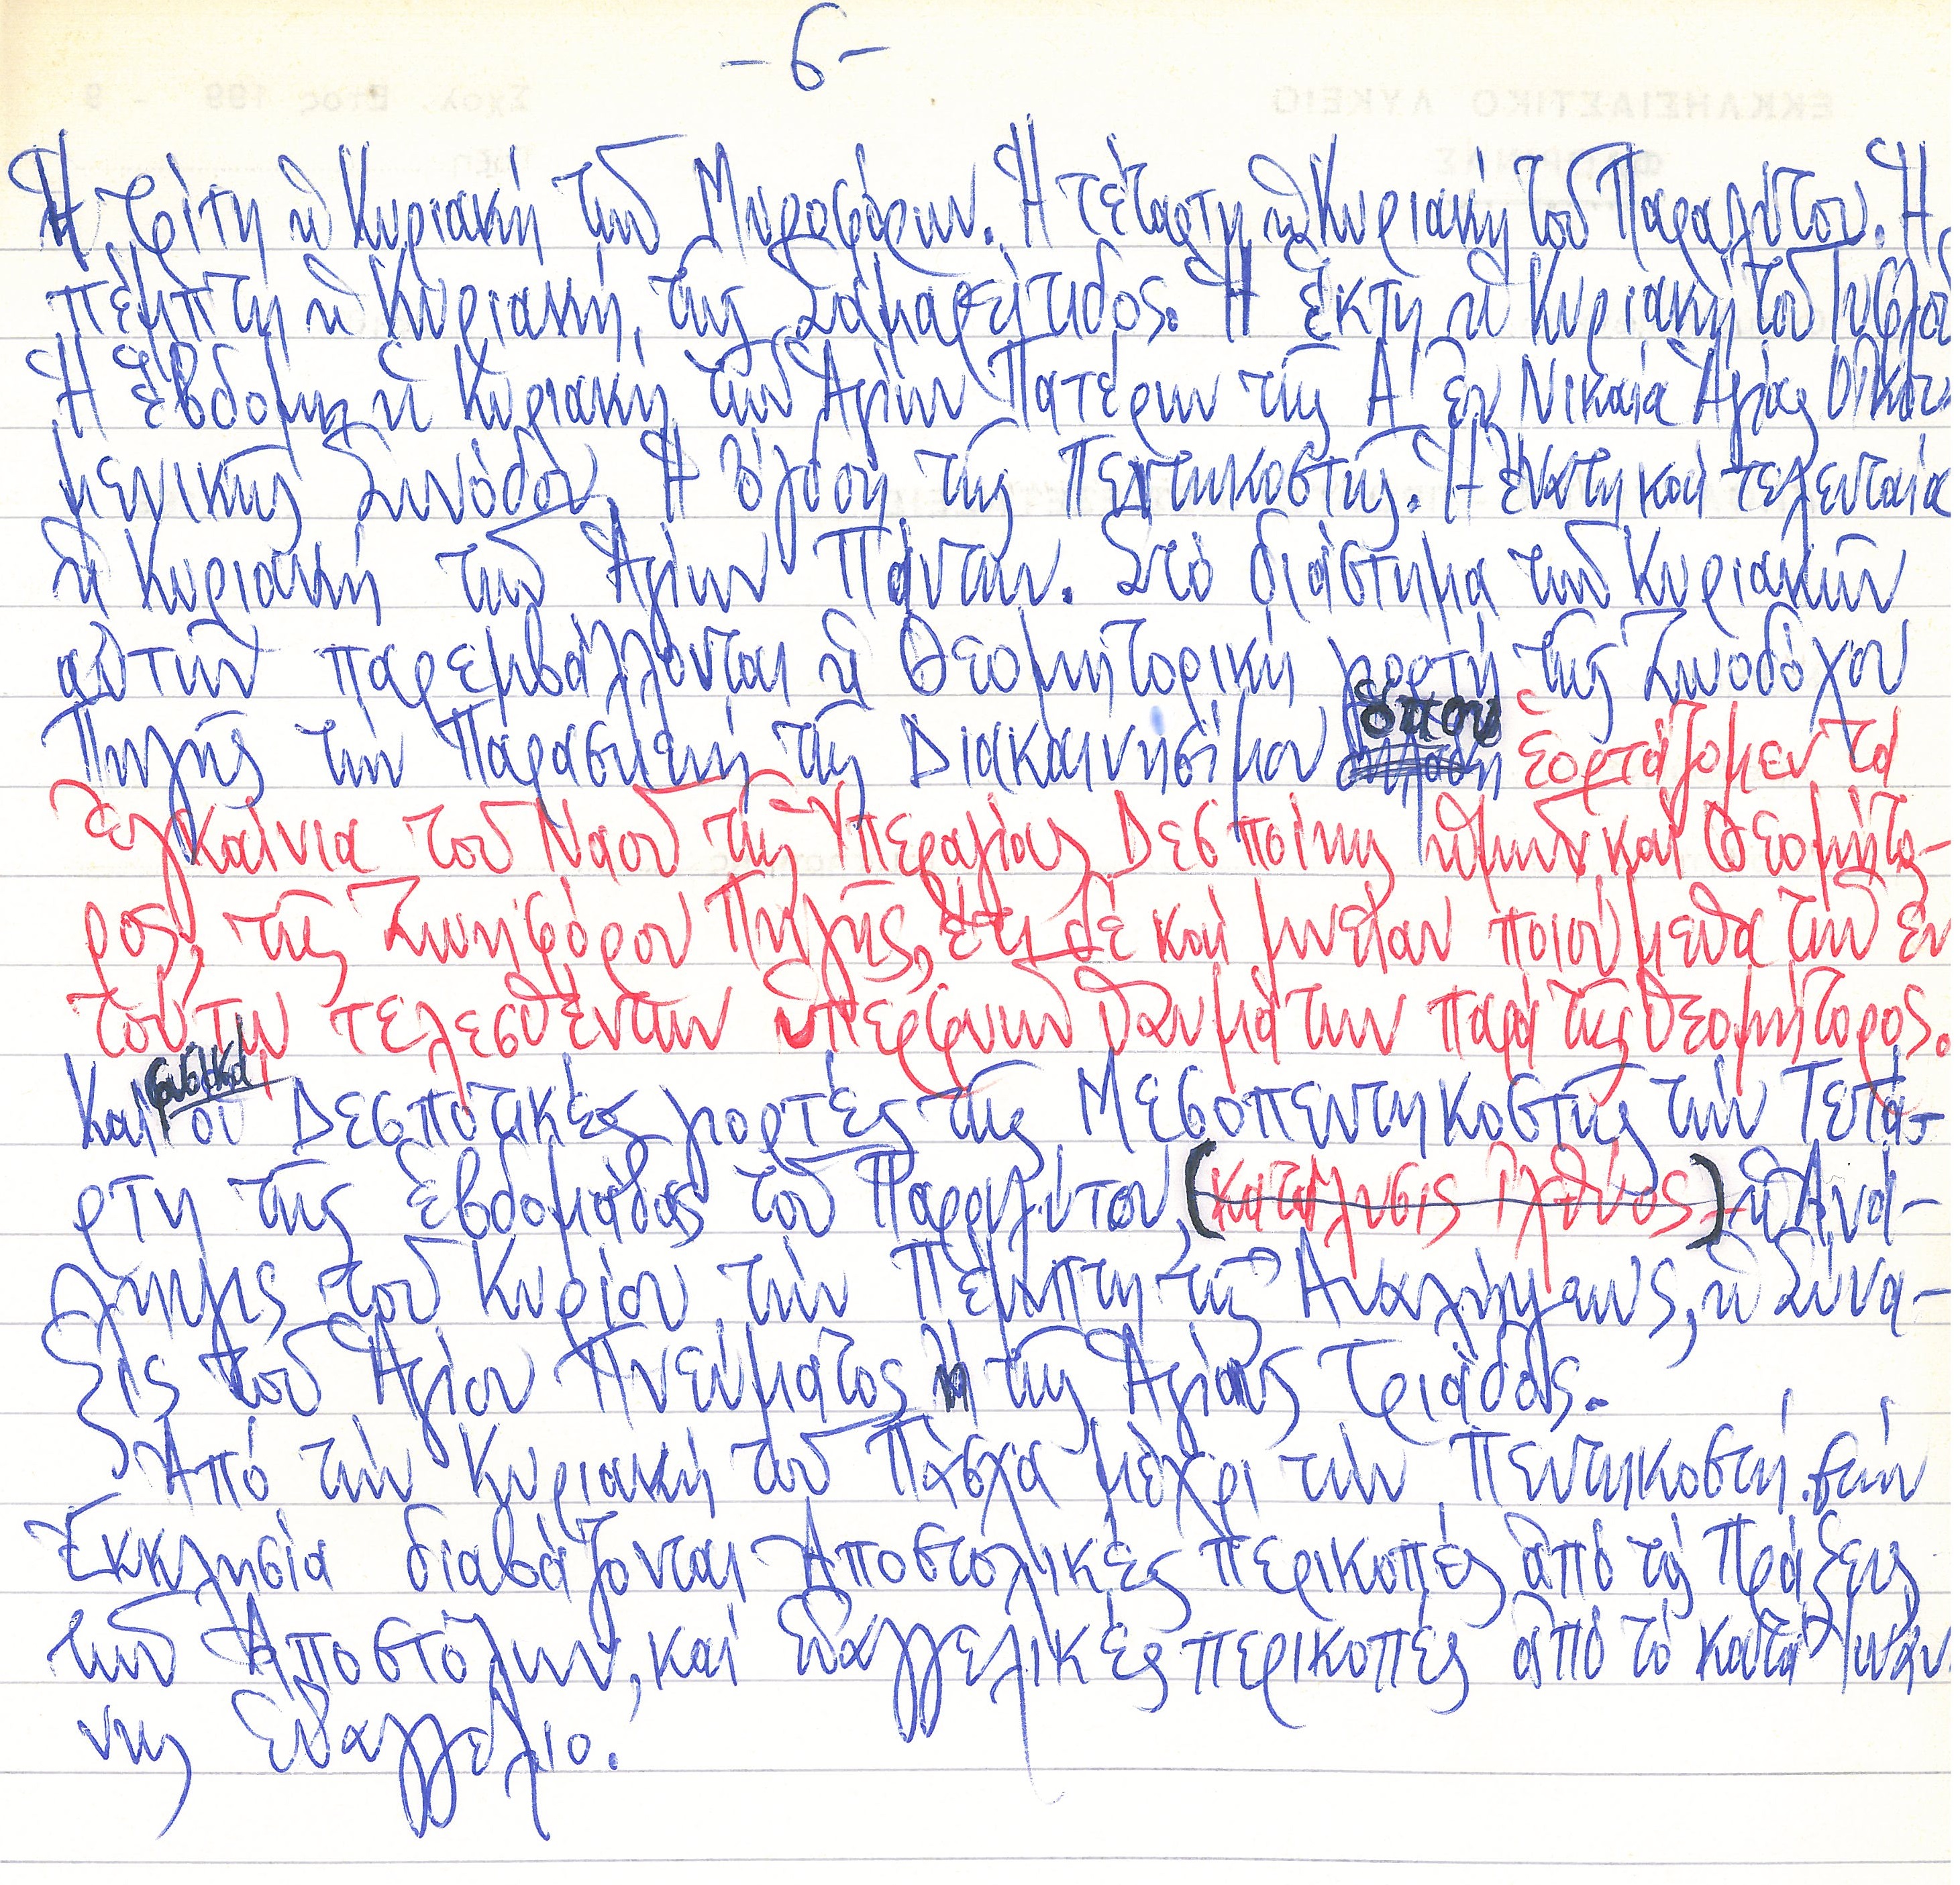 -6-
Ἡ τρίτη ἡ Κυριακή τῶν Μυροφόρων. Ἡ τέταρτη ἡ Κυριακή τοῦ Παραλύτου. Ἡ
πέμπτη ἡ Κυριακή τῆς Σαμαρείτιδος. Ἡ ἕκτη ἡ Κυριακή τοῦ Τυφλοῦ
Ἡ ἕβδομη ἡ Κυριακή τῶν Ἁγίων Πατέρων τῆς Α' ἐν Νικαία Ἁγίας Οἰκου
μενικῆς Συνόδου. Ἡ ὄγδοη τῆς Πεντηκοστῆς. Ἡ ἔνατη καί τελευταία
ἡ Κυριακή τῶν Ἁγίων Πάντων. Στό διάστημα τῶν Κυριακῶν
αὐτῶν παρεμβάλλονται ἡ Θεομητορική γιορτή τῆς Ζωοδόχου
Πηγῆς τήν Παρασκευή τῆς Διακαινησίμου ὅπου ἑορτάζομεν τά
ἐγκαίνια τοῦ Ναοῦ τῆς Ὑπεραγίας Δεσποίνης ἡμῶν καί Θεομήτο-
ρος, τῆς Ζωηφόρου Πηγῆς, ἔτι δέ καί μνείαν ποιούμεθα τῶν ἐν
τούτῳ τελεσθέντων ὑπερφυῶν θαυμάτων παρά τῆς Θεομήτορος.
Καί φυσικά οἱ Δεσποτικές γιορτές τῆς Μεσοπεντηκοστῆς τήν Τετά-
ρτη τῆς ἑβδομάδας τοῦ Παραλύτου, (κατάλυσις ἰχθύος) ἡ Ἀνά-
ληψις τοῦ Κυρίου τήν Πέμπτη τῆς Ἀναλήψεως, ἡ Σύνα-
ξις τοῦ Ἁγίου Πνεύματος ἤ τῆς Ἁγίας Τριάδας.
Ἀπό τήν Κυριακή τοῦ Πάσχα μέχρι τήν Πεντηκοστή στήν
Ἐκκλησία διαβάζονται Ἀποστολικές περικοπές ἀπό τίς Πράξεις
τῶν Ἀποστόλων, καί Εὐαγγελικές περικοπές ἀπό τό κατά Ἰωάν
νης Εὐαγγέλιο.